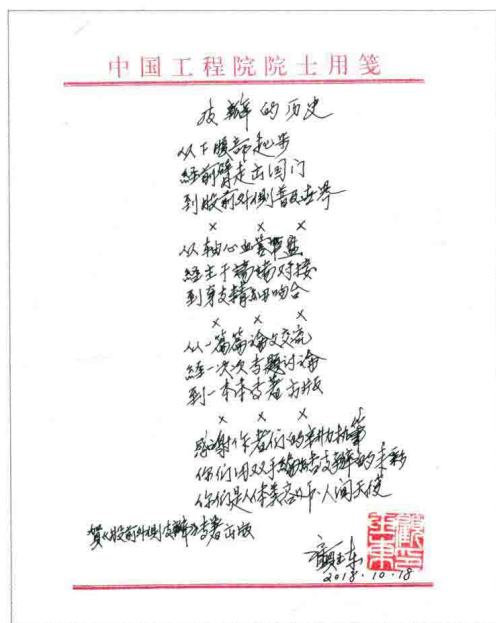 中国工程院院士用笺
皮瓣的历史
从下腹部起步
经前臂走出国门
到股前外侧普及世界
× × ×
从轴心血管带蒂
经主干端端对接
到穿支精细吻合
× × ×
从一篇篇论文交流
经一次次专题讨论
到一本本专著出版
× × ×
感谢作者们的辛勤执笔
你们用双手编织皮瓣的未来
你们是人体美容师、人间天使
贺《股前外侧皮瓣》专著出版
顾玉东
2018.10.18
顾玉东印